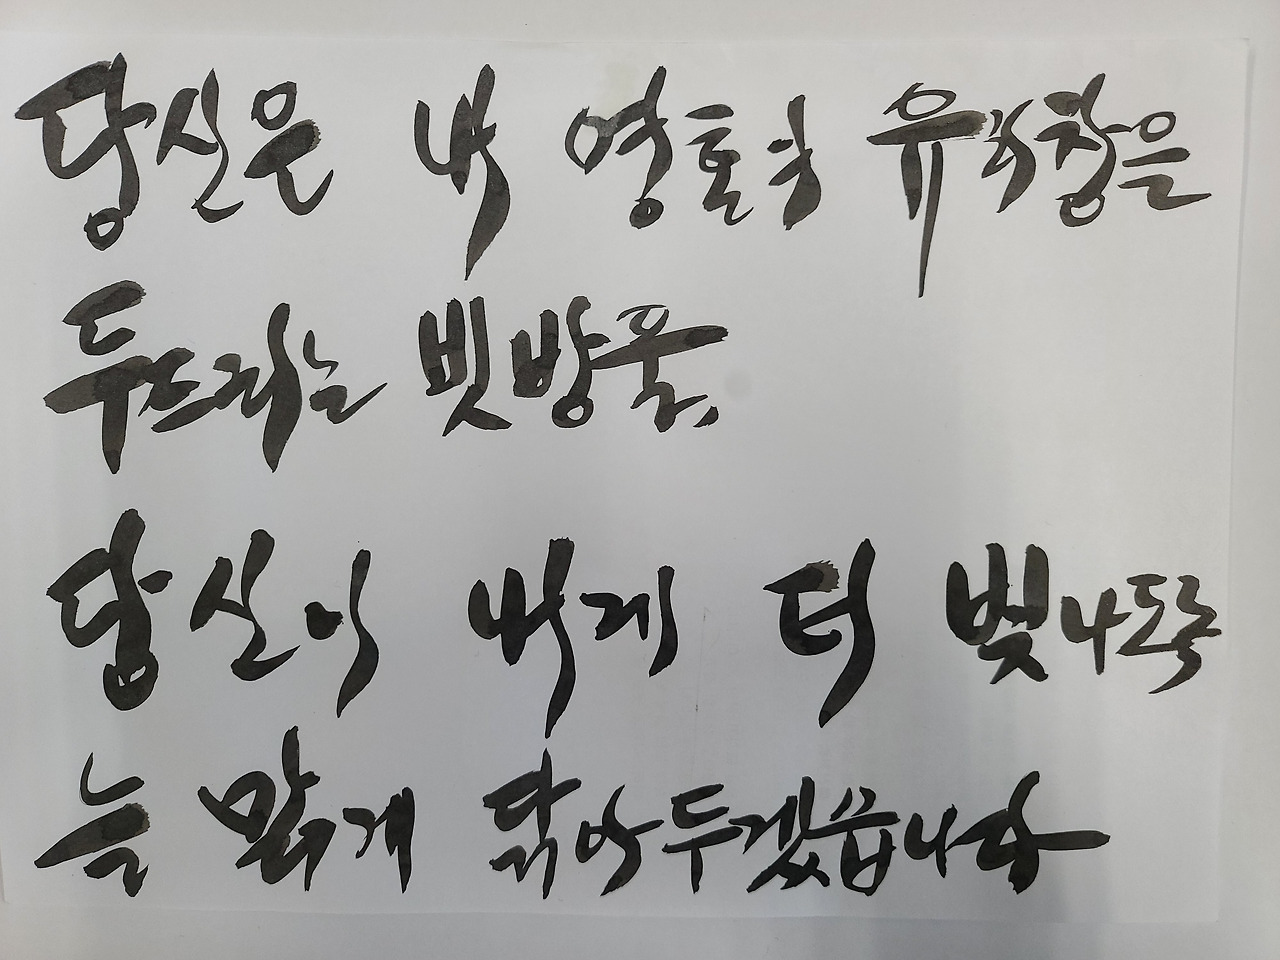 당신은 내 영혼의 유리창을
두드리는 빗방울,
당신이 내게 더 빛나도록
늘 맑게 닦아두겠습니다